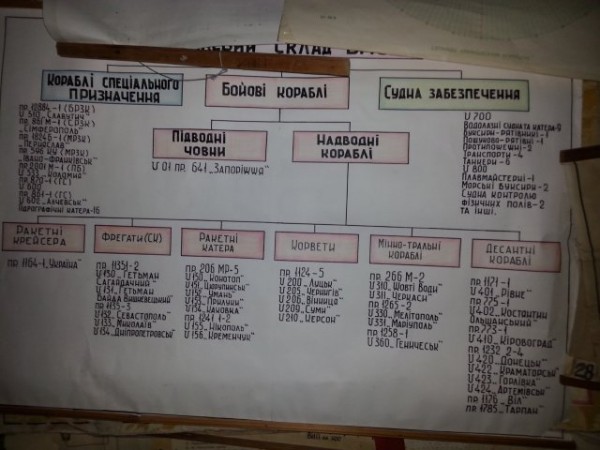 СКЛАД
КОРАБЛІ СПЕЦІАЛЬНОГО
ПРИЗНАЧЕННЯ
БОЙОВІ КОРАБЛІ
СУДНА ЗАБЕЗПЕЧЕННЯ
U 510 „Славутич"
„Сімферополь"
„Переяслав"
„Івано-Франківськ"
гідрографічні катера-16
U 700
Водолазні судна та катера-9
Буксири-рятівн.-1
Пошуково-рятівні-1
Протипожежні-3
Транспорти-4
Танкери-6
U 800
Плавмайстерні-1
Морські буксири-2
Судна контролю
фізичних полів-2
та інші.
ПІДВОДНІ
ЧОВНИ
U 01 пр. 641 „Запоріжжя"
НАДВОДНІ
КОРАБЛІ
РАКЕТНІ
КРЕЙСЕРА
пр. 1164-1 „Україна"
ФРЕГАТИ (СК)
пр. 11351-2
U 130 „Гетьман
Сагайдачний"
U 131 „Гетьман
Байда Вишневецький"
пр. 1135-3
U 132 „Севастополь"
U 133 „Миколаїв"
U 134 „Дніпропетровськ"
РАКЕТНІ
КАТЕРА
пр. 206 МР-5
U 150 „Конотоп"
U 151 „Цюрупинськ"
U 152 „Умань"
U 153 „Прилуки"
U 154 „Каховка"
пр. 1241 1-2
U 155 „Нікополь"
U 156 „Кременчук"
КОРВЕТИ
пр. 1124-5
U 200 „Луцьк"
U 205 „Чернігів"
U 206 „Вінниця"
U 209 „Суми"
U 210 „Херсон"
МІННО-ТРАЛЬНІ
КОРАБЛІ
пр. 266 М-2
U 310 „Жовті Води"
U 311 „Черкаси"
пр. 1265-2
U 330 „Мелітополь"
U 331 „Маріуполь"
пр. 1258-1
U 360 „Генічеськ"
ДЕСАНТНІ
КОРАБЛІ
пр. 1171-1
U 401 „Рівне"
пр. 775-1
U 402 „Костянтин
Ольшанський"
пр. 773-1
U 410 „Кіровоград"
пр. 1232 2-4
U 420 „Донецьк"
U 422 „Краматорськ"
U 423 „Горлівка"
U 424 „Артемівськ"
пр. 1176 „Віл"
пр. 1785 „Тарпан"
28